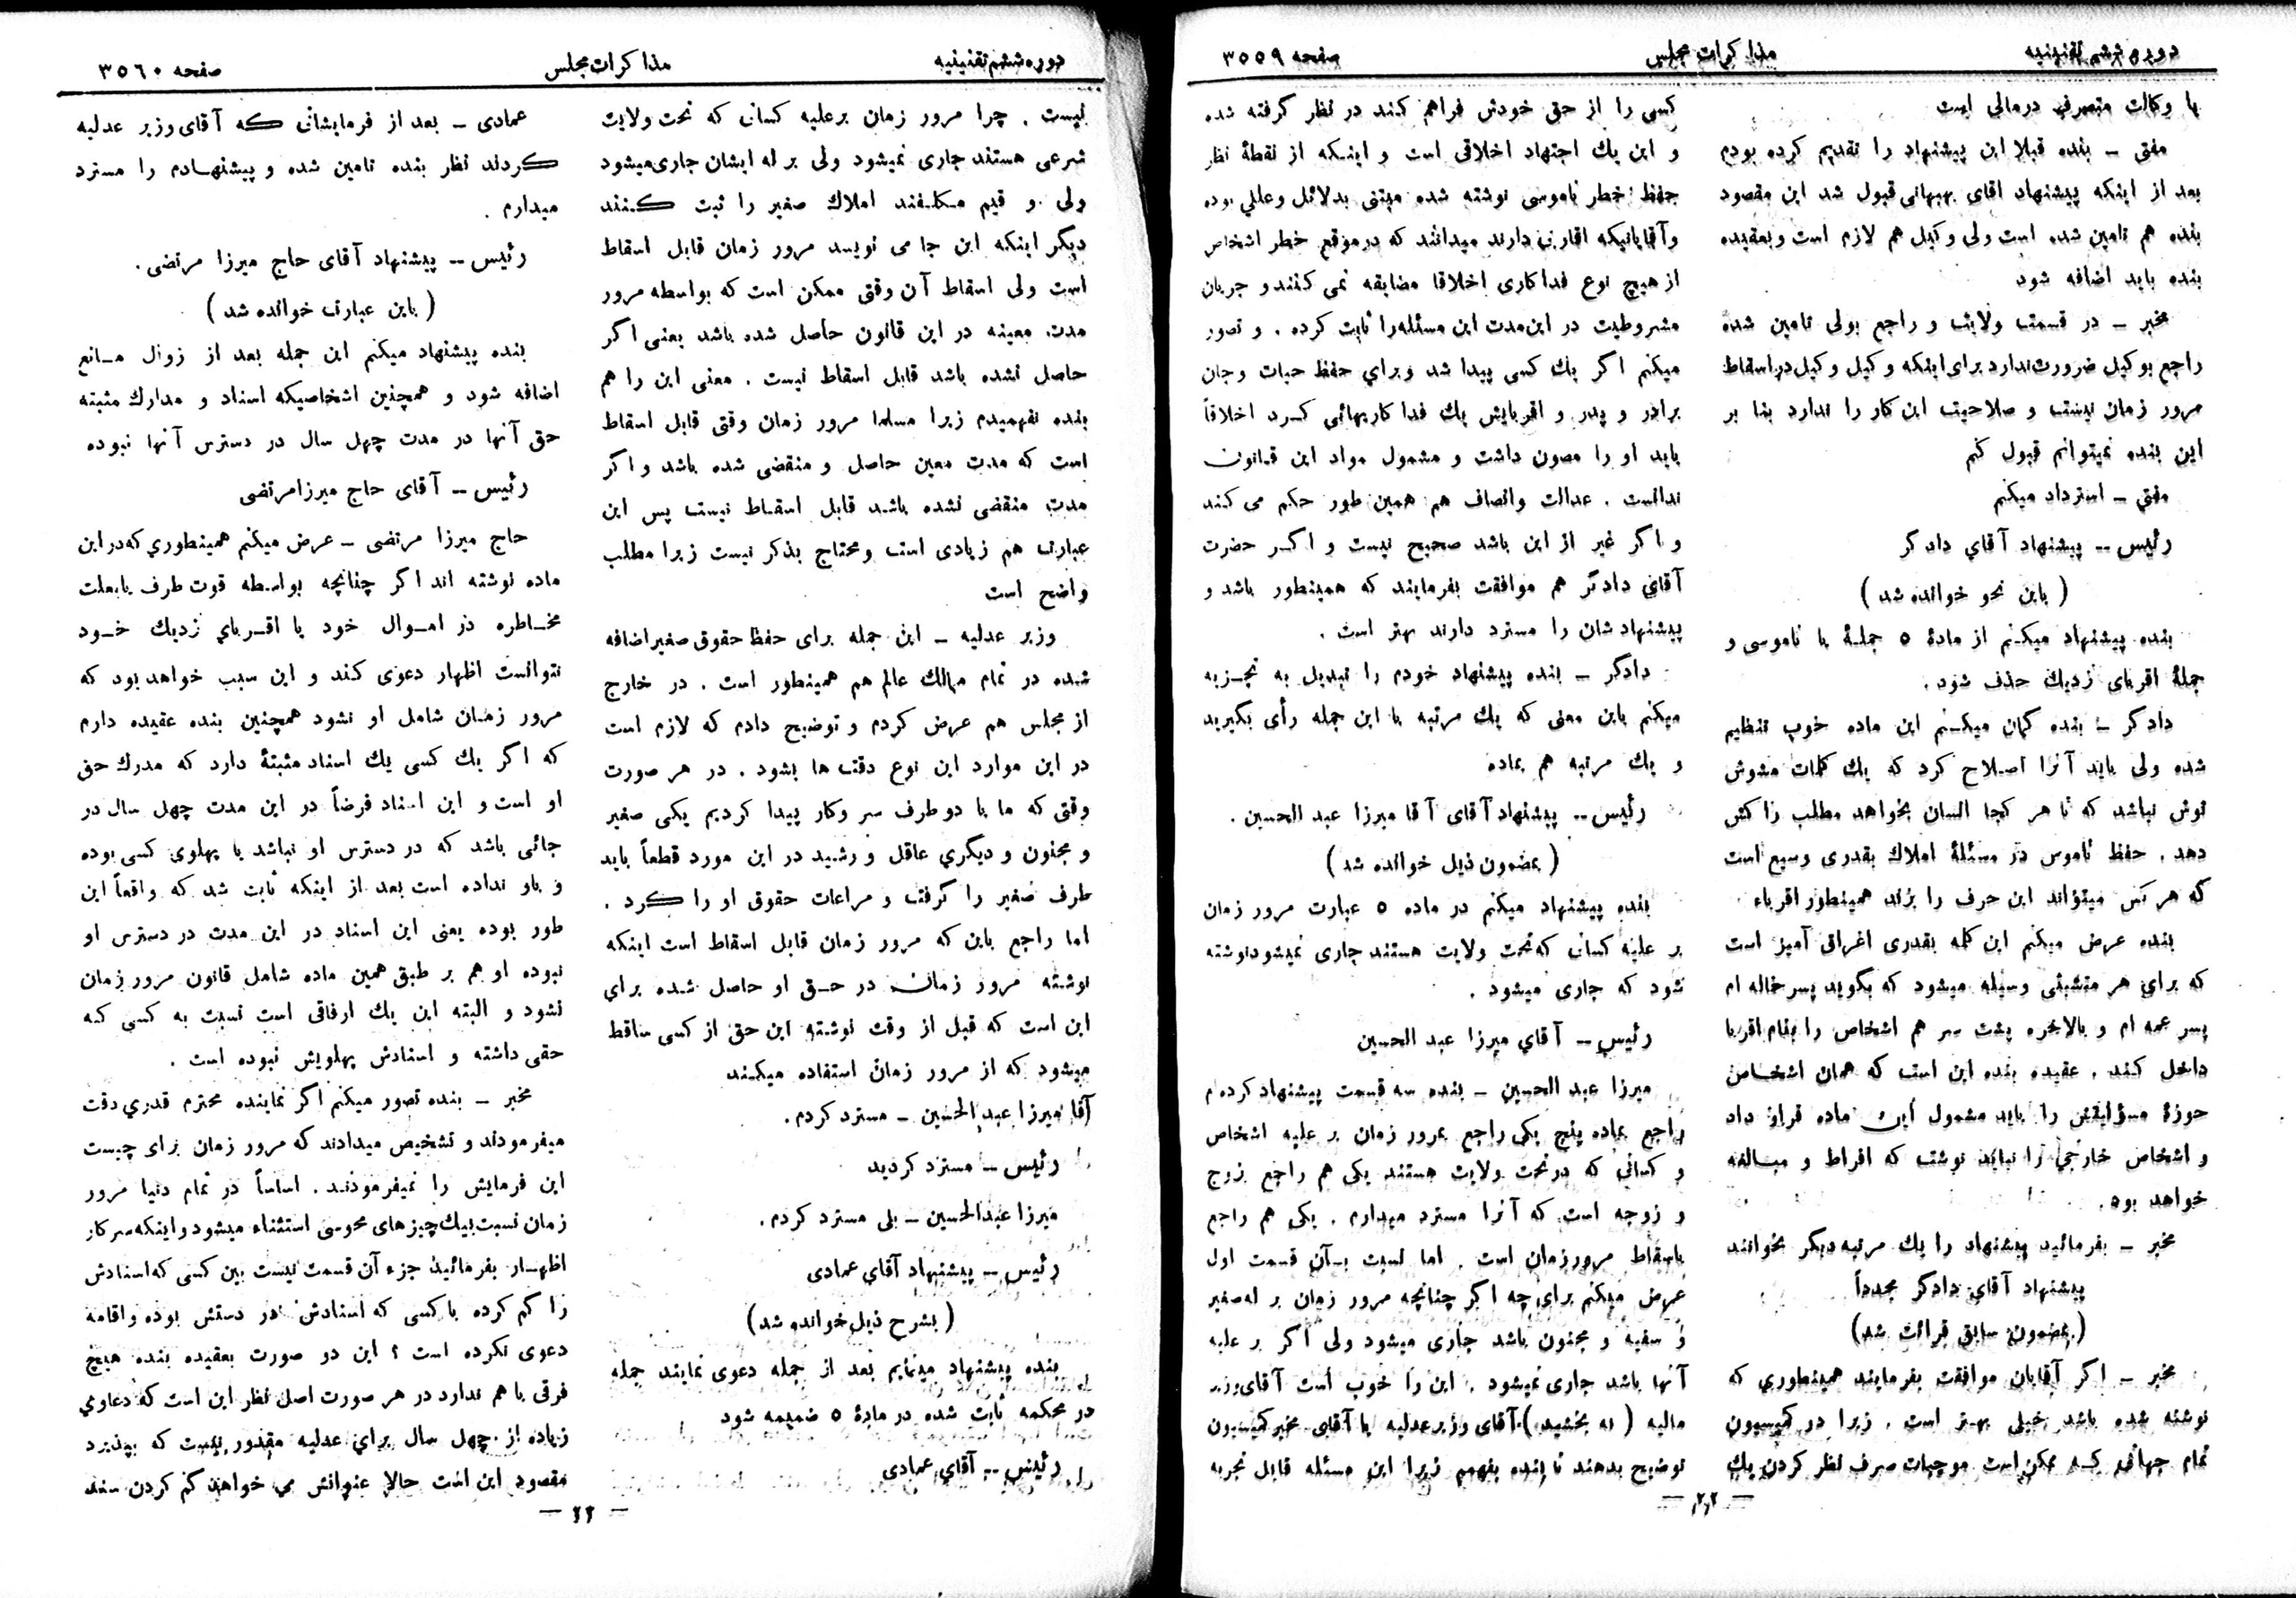 دوره ششم تقنینیه
مذاکرات مجلس
صفحه ۳۵۵۹
یا وکالت متصرف درمالی است
مفتی ــ بنده قبلا این پیشنهاد را تقدیم کرده بودم
بعد از اینکه پیشنهاد اقای بهبهانی قبول شد این مقصود
بنده هم تامین شده است ولی وکیل هم لازم است وبعقیده
بنده باید اضافه شود
مخبر ــ در قسمت ولایت و راجع بولی تامین شده
راجع بوکیل ضرورت ندارد برای اینکه وکیل وکیل در اسقاط
مرور زمان نیست و صلاحیت این کار را ندارد بنا بر
این بنده نمیتوانم قبول کنم
مفتی ــ استرداد میکنم
رئیس ــ پیشنهاد آقای دادگر
(باین نحو خوانده شد)
بنده پیشنهاد میکنم از مادهٔ ۵ جملهٔ یا ناموسی و
جملهٔ اقربای نزدیك حذف شود.
دادگر ــ بنده گمان میکنم این ماده خوب تنظیم
شده ولی باید آنرا اصلاح کرد که یك کلمات مشوش
توش نباشد که تا هر کجا انسان بخواهد مطلب را کش
دهد. حفظ ناموس در مسئلهٔ املاك بقدری وسیع است
که هر کس میتواند این حرف را بزند همینطور اقرباء
بنده عرض میکنم این کلمه بقدری اغراق آمیز است
که برای هر متشبثی وسیله میشود که بگوید پسرخاله ام
پسر عمه ام و بالاخره پشت سر هم اشخاص را بنام اقربا
داخل کند. عقیده بنده این است که همان اشخاص
حوزهٔ مسؤلیتش را باید مشمول این ماده قرار داد
و اشخاص خارجی را نباید نوشت که افراط و مبالغه
خواهد بود.
مخبر ــ بفرمائید پیشنهاد را یك مرتبه دیگر بخوانند
پیشنهاد آقای دادگر مجدداً
(بمضمون سابق قرائت شد)
مخبر ــ اگر آقایان موافقت بفرمایند همینطوری که
نوشته شده باشد خیلی بهتر است. زیرا در کمیسیون
تمام جهاتی که ممکن است موجبات صرف نظر کردن یك
کسی را از حق خودش فراهم کند در نظر گرفته شده
و این یك اجتهاد اخلاقی است و اینکه از نقطهٔ نظر
حفظ خطر ناموسی نوشته شده مبتنی بدلائل وعللی بوده
وآقایانیکه اقارب دارند میدانند که در موقع خطر اشخاص
از هیچ نوع فداکاری اخلاقا مضایقه نمی کنند و جریان
مشروطیت در این مدت این مسئله را ثابت کرده. و تصور
میکنم اگر یك کسی پیدا شد وبرای حفظ حیات وجان
برادر و پدر و اقربایش یك فداکاریهائی کرد اخلاقاً
باید او را مصون داشت و مشمول مواد این قانون
ندانست. عدالت وانصاف هم همین طور حکم می کند
و اگر غیر از این باشد صحیح نیست و اگر حضرت
آقای دادگر هم موافقت بفرمایند که همینطور باشد و
پیشنهادشان را مسترد دارند بهتر است.
دادگر ــ بنده پیشنهاد خودم را تبدیل به تجزیه
میکنم باین معنی که یك مرتبه با این جمله رأی بگیرید
و یك مرتبه هم بماده
رئیس ــ پیشنهاد آقای آقا میرزا عبد الحسین.
(بمضمون ذیل خوانده شد)
بنده پیشنهاد میکنم در ماده ۵ عبارت مرور زمان
بر علیه کسانی که تحت ولایت هستند جاری نمیشود نوشته
شود که جاری میشود.
رئیس ــ آقای میرزا عبد الحسین
میرزا عبد الحسین ــ بنده سه قسمت پیشنهاد کرده‌ام
راجع بماده پنج یکی راجع بمرور زمان بر علیه اشخاص
و کسانی که در تحت ولایت هستند یکی هم راجع بزوج
و زوجه است که آنرا مسترد میدارم. یکی هم راجع
باسقاط مرور زمان است. اما نسبت بآن قسمت اول
عرض میکنم برای چه اگر چنانچه مرور زمان بر له صغیر
و سفیه و مجنون باشد جاری میشود ولی اگر بر علیه
آنها باشد جاری نمیشود. این را خوب است آقای وزیر
مالیه (نه بخشید) آقای وزیر عدلیه یا آقای مخبر کمیسیون
توضیح بدهند تا بنده بفهمم زیرا این مسئله قابل تجربه
ــ ۲۲ ــ
دوره ششم تقنینیه
مذاکرات مجلس
صفحه ۳۵۶۰
نیست. چرا مرور زمان برعلیه کسانی که تحت ولایت
شرعی هستند جاری نمیشود ولی بر له ایشان جاری میشود
ولی و قیم مکلفند املاك صغیر را ثبت کنند
دیگر اینکه این جا می نویسد مرور زمان قابل اسقاط
است ولی اسقاط آن وقتی ممکن است که بواسطه مرور
مدت معینه در این قانون حاصل شده باشد یعنی اگر
حاصل نشده باشد قابل اسقاط نیست. معنی این را هم
بنده نفهمیدم زیرا مسلما مرور زمان وقتی قابل اسقاط
است که مدت معین حاصل و منقضی شده باشد و اگر
مدت منقضی نشده باشد قابل اسقاط نیست پس این
عبارت هم زیادی است ومحتاج بذکر نیست زیرا مطلب
واضح است
وزیر عدلیه ــ این جمله برای حفظ حقوق صغیر اضافه
شده در تمام ممالك عالم هم همینطور است. در خارج
از مجلس هم عرض کردم و توضیح دادم که لازم است
در این موارد این نوع دقت ها بشود. در هر صورت
وقتی که ما با دو طرف سر وکار پیدا کردیم یکی صغیر
و مجنون و دیگری عاقل و رشید در این مورد قطعاً باید
طرف صغیر را گرفت و مراعات حقوق او را کرد.
اما راجع باین که مرور زمان قابل اسقاط است اینکه
نوشته مرور زمان در حق او حاصل شده برای
این است که قبل از وقت نوشته این حق از کسی ساقط
میشود که از مرور زمان استفاده میکند
آقا میرزا عبدالحسین ــ مسترد کردم.
رئیس ــ مسترد کردید
میرزا عبدالحسین ــ بلی مسترد کردم.
رئیس ــ پیشنهاد آقای عمادی
(بشرح ذیل خوانده شد)
بنده پیشنهاد مینمایم بعد از جمله دعوی نمایند جمله
در محکمه ثابت شده در مادهٔ ۵ ضمیمه شود
رئیس ــ آقای عمادی
عمادی ــ بعد از فرمایشاتی که آقای وزیر عدلیه
کردند نظر بنده تامین شده و پیشنهادم را مسترد
میدارم.
رئیس ــ پیشنهاد آقای حاج میرزا مرتضی.
(باین عبارت خوانده شد)
بنده پیشنهاد میکنم این جمله بعد از زوال مانع
اضافه شود و همچنین اشخاصیکه اسناد و مدارك مثبته
حق آنها در مدت چهل سال در دسترس آنها نبوده
رئیس ــ آقای حاج میرزا مرتضی
حاج میرزا مرتضی ــ عرض میکنم همینطوری که در این
ماده نوشته اند اگر چنانچه بواسطه قوت طرف یا بعلت
مخاطره در اموال خود یا اقربای نزدیك خود
نتوانست اظهار دعوی کند و این سبب خواهد بود که
مرور زمان شامل او نشود همچنین بنده عقیده دارم
که اگر یك کسی یك اسناد مثبتهٔ دارد که مدرك حق
او است و این اسناد فرضاً در این مدت چهل سال در
جائی باشد که در دسترس او نباشد یا پهلوی کسی بوده
و باو نداده است بعد از اینکه ثابت شد که واقعاً این
طور بوده یعنی این اسناد در این مدت در دسترس او
نبوده او هم بر طبق همین ماده شامل قانون مرور زمان
نشود و البته این یك ارفاقی است نسبت به کسی که
حقی داشته و اسنادش پهلویش نبوده است.
مخبر ــ بنده تصور میکنم اگر نماینده محترم قدری دقت
میفرمودند و تشخیص میدادند که مرور زمان برای چیست
این فرمایش را نمیفرمودند. اساساً در تمام دنیا مرور
زمان نسبت بیك چیزهای مخصوصی استثناء میشود و اینکه سرکار
اظهار بفرمائید جزء آن قسمت نیست بین کسی که اسنادش
را گم کرده یا کسی که اسنادش در دستش بوده واقامه
دعوی نکرده است ؟ این دو صورت بعقیده بنده هیچ
فرقی با هم ندارد در هر صورت اصل نظر این است که دعاوی
زیاده از چهل سال برای عدلیه مقدور نیست که بپذیرد
مقصود این است حالا عنوانش می خواهد گم کردن سند
ــ ۲۲ ــ